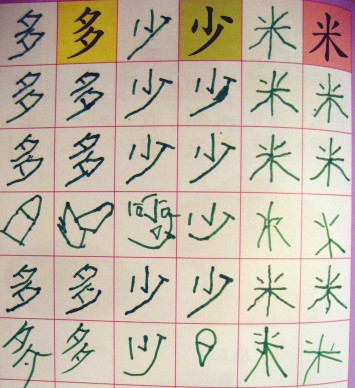 多 多 少 少 米 米
多 多 少 少 米 米
多 多 少 少 米 米
少 米
多 多 少 少 米 米
多 多 少 米 米